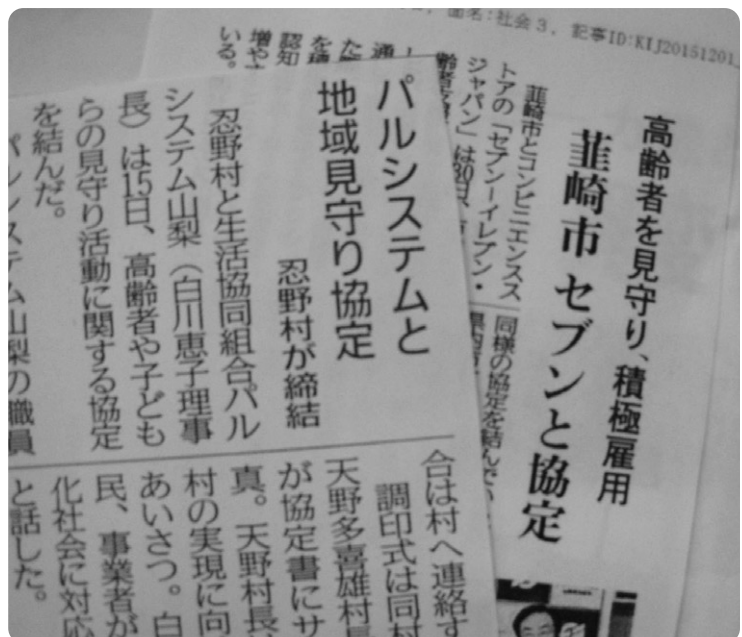 面名:社会3, 記事ID:KIJ20151201_
高齢者を見守り、積極雇用
韮崎市 セブンと協定
韮崎市とコンビニエンスス
トアの「セブン―イレブン・
ジャパン」は30日、
同様の協定を結んでい
認知
増やす
いる。
パルシステムと
地域見守り協定
忍野村が締結
忍野村と生活協同組合パル
システム山梨(白川恵子理事
長)は15日、高齢者や子ども
らの見守り活動に関する協定
を結んだ。
パルシステム山梨の職員
合は村へ連絡す
調印式は同村
天野多喜雄村長
が協定書にサ
真。天野村長は
村の実現に向
あいさつ。白
民、事業者が
化社会に対応
と話した。